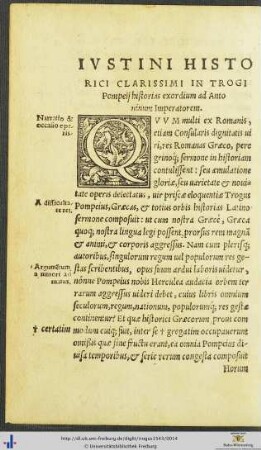 IVSTINI HISTO
RICI CLARISSIMI IN TROGI
Pompeij historias exordium ad Anto
ninum Imperatorem.
Narratio &
occasio ope
ris.
QVVM multi ex Romanis,
etiam Consularis dignitatis ui
ri, res Romanas Græco, pere
grinoq; sermone in historiam
contulissent: seu æmulatione
gloriæ, seu uarietate & noui
tate operis delectatus, uir priscæ eloquentiæ Trogus
A difficulta
te rei.
Pompeius, Græcas, & totius orbis historias Latino
sermone composuit: ut cum nostra Græcè, Græca
quoq; nostra lingua legi possent, prorsus rem magnā
& animi, & corporis aggressus. Nam cum plerisq;
autoribus, singulorum regum uel populorum res ge-
stas scribentibus, opus suum ardui laboris uideatur,
Argumentum,
nónne Pompeius nobis Herculea audacia orbem ter
rarum aggressus uideri debet, cuius libris omnium
seculorum, regum, nationum, populorumq; res gestæ
continentur? Et quæ historici Græcorum, prout com
† certatim
modum cuiq; fuit, inter se † gregatim occupauerunt
omissis quæ sine fructu erant, ea omnia Pompeius di
uisa temporibus, & serie rerum congesta composuit
Horum
http://dl.ub.uni-freiburg.de/diglit/iustinus1543/0014
© Universitätsbibliothek Freiburg